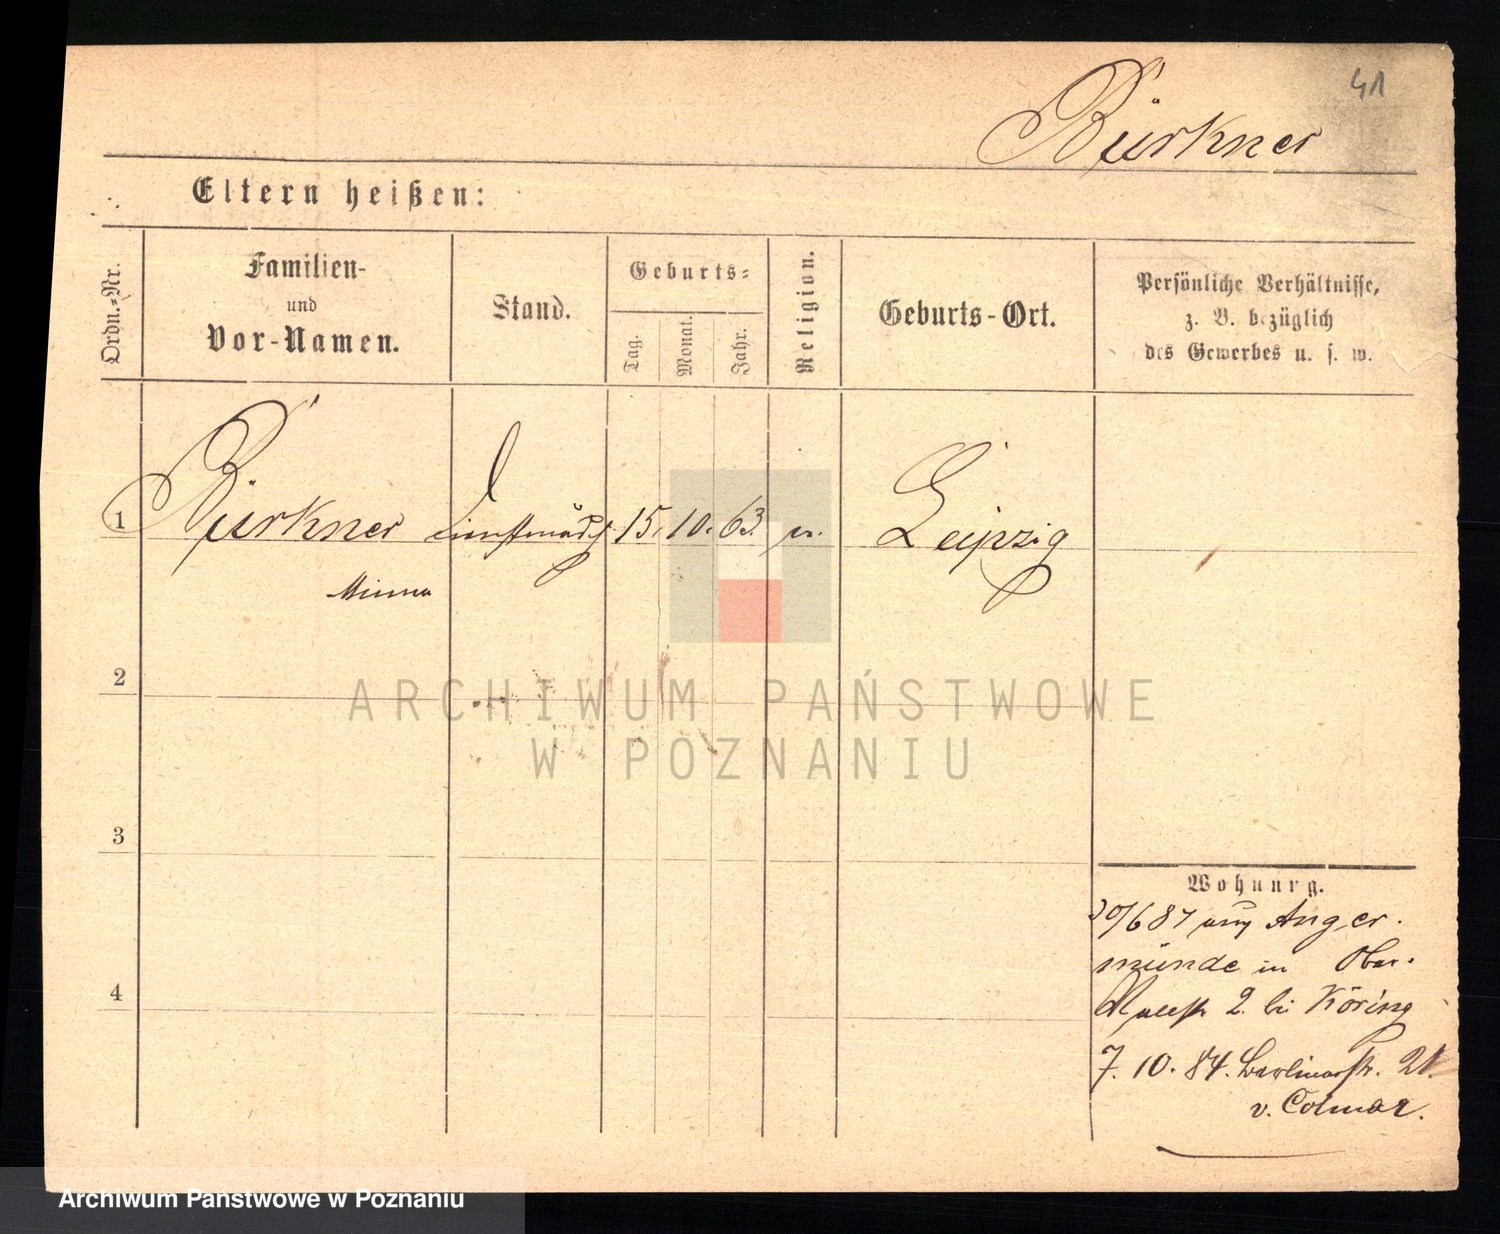 41
Bürkner
Eltern heißen:
Ordn.-Nr.
Familien-
und
Vor-Namen.
Stand.
Geburts-
Tag.
Monat.
Jahr.
Religion.
Geburts-Ort.
Persönliche Verhältnisse,
z. B. bezüglich
des Gewerbes u. s. w.
1 Bürkner Dienstmädch 15. 10. 63. Leipzig
Minna
2
3
4
Wohnung.
30/6 87 aus Anger-
münde in Ober-
2. bei Köring
7. 10. 84. Berlinerstr. 21.
v. Colmar.
ARCHIWUM PAŃSTWOWE
W POZNANIU
Archiwum Państwowe w Poznaniu